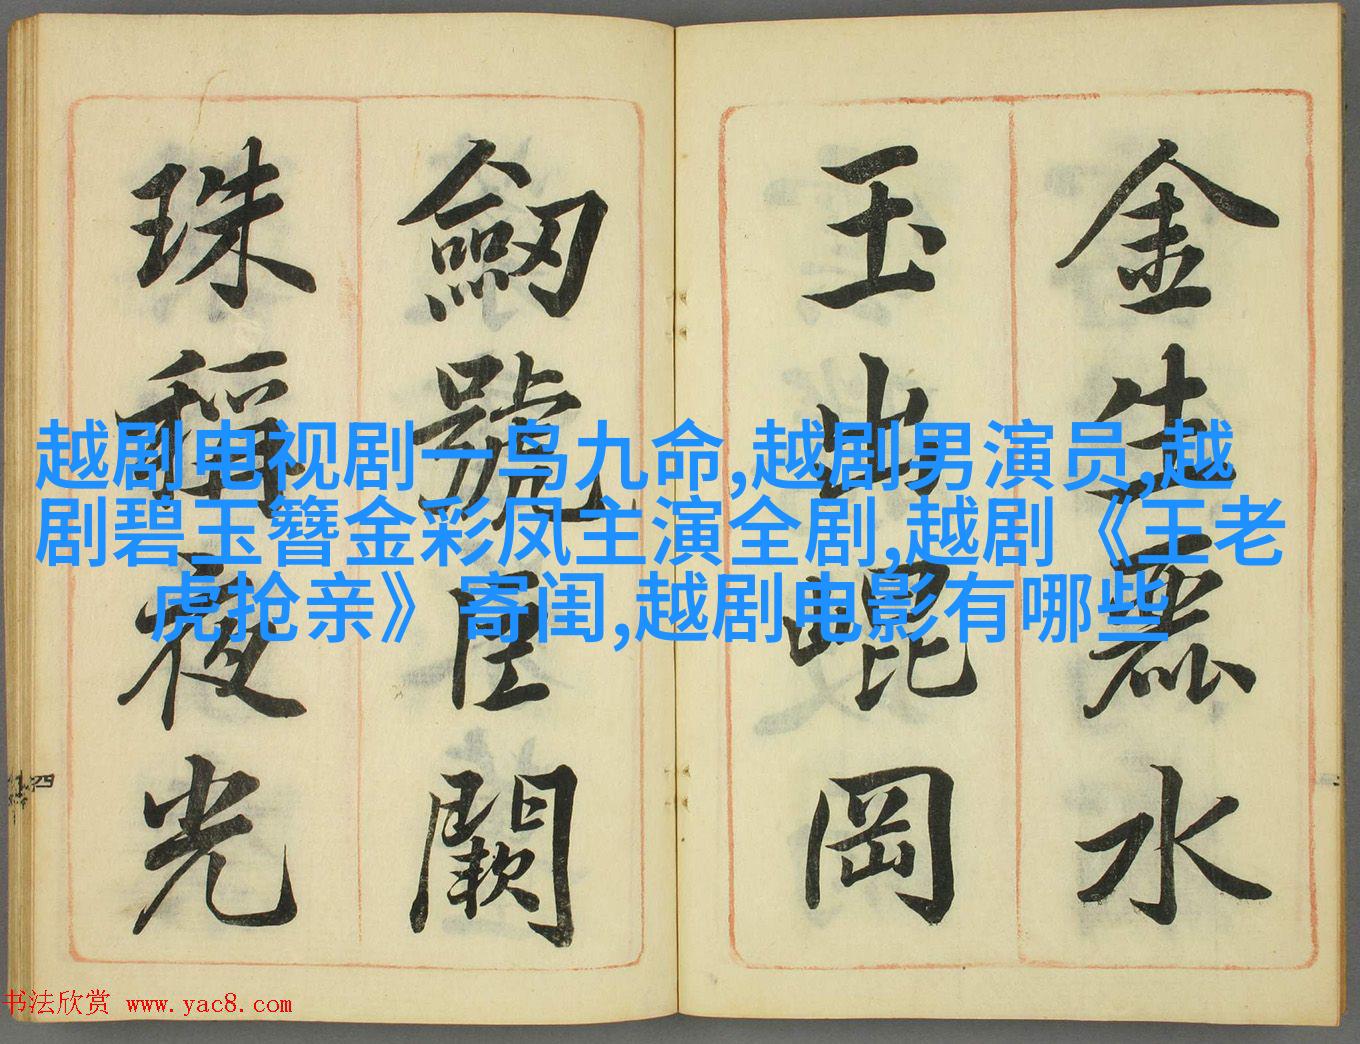 金生麗水
玉出崐岡
劒號巨闕
珠稱夜光
越剧电视剧一鸟九命,越剧男演员,越
剧碧玉簪金彩凤主演全剧,越剧《王老
虎抢亲》寄闺,越剧电影有哪些
四
书法欣赏 www.yac8.com